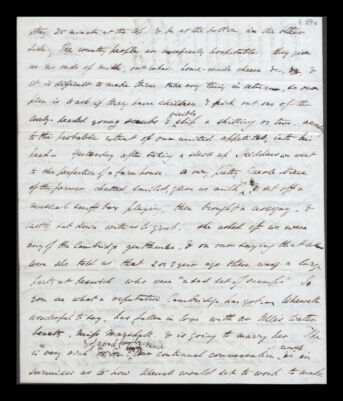 stay 25 minutes at the top & be at the bottom on the other
side. The country people are uncommonly hospitable. they give
us no ends of milk, oat cakes, home-made cheese &c, &
it is difficult to make them take any thing in return, so our
plan is to ask if they have children & pick out one of the
curly-headed young & slip a shilling or two,
to the probable extent of our united appetites, into his
hand. Yesterday after taking a we went
to the perfection of a farm house. A very pretty
of the farmer chatted smiled, gave us milk, & set off a
musical snuff box playing, then brought a nosegay, &
lastly sat down with us to grub. she asked if we were
any of the Cambridge gentlemen, & on our saying that we
were she told us that 2 or 3 years ago there was a large
party at Keswick who were "a sad set of So
you see what a reputation Cambridge has got in Whewell
wonderful to say, has fallen in love with an Ulles Water
beauty, Miss Marshall & is going to marry her. She
is very rich of good family and our continual conversation is in
surmises as to how Whewell would set to work to make